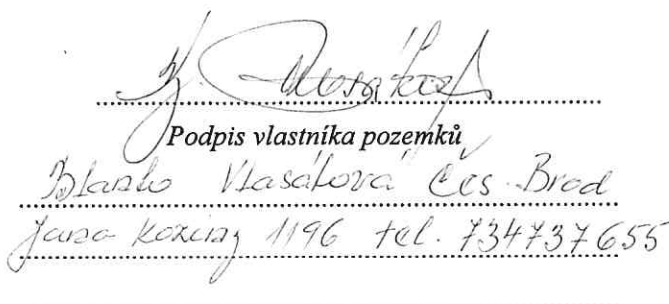 Podpis vlastníka pozemků
Blanka Vlasáková Čes. Brod
Jana Koziny 1196 tel. 734737655